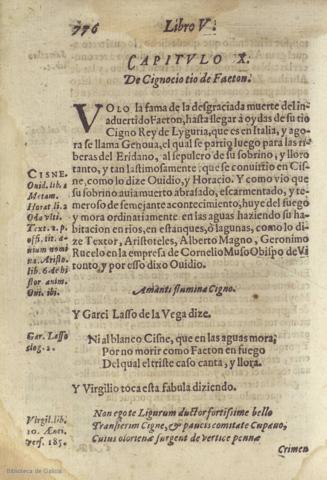 776 Libro V.
CAPITVLO X.
De Cignocio tio de Faeton.
VOLO la fama de la desgraciada muerte del in-
aduertido Faeton, hasta llegar à oydas de su tio
Cigno Rey de Lyguria, que es en Italia, y ago-
ra se llama Genoua, el qual se partio luego para las ri-
beras del Eridano, al sepulcro de su sobrino, y lloro
tanto, y tan lastimosamente que se conuirtio en Cis-
ne, como lo dize Ouidio, y Horatio. Y como vio que
su sobrino auia muerto abrasado, escarmentado, y te-
meroso de semejante acontecimiento, huye del fuego
y mora ordinatiamente en las aguas haziendo su ha-
bitacion en rios, en estanques, ò lagunas, como lo di-
ze Textor, Aristoteles, Alberto Magno, Geronimo
Rucelo en la empresa de Cornelio Muso Obispo de Vi
tonto, y por esso dixo Ouidio.
CISNE.
Ouid. lib. 2
Metam.
Horat li. 2
Ode vlti.
Text. 2. p.
offi. tit. a-
nium nomi
na. Aristo.
lib. 6. de hi
stor anim.
Oui. ibi.
Amanti flumina Cigno.
Y Garci Lasso de la Vega dize.
Gar. Lasso
elog. 2.
Ni al blanco Cisne, que en las aguas mora,
Por no morir como Faeton en fuego
Del qual el triste caso canta, y llora.
Y Virgilio toca esta fabula diziendo.
Virgil. lib.
10. Aenei.
vers. 185.
Non ego te Ligurum ductor fortissime bello
Transierim Cigne, & paucis comitate Cupauo,
Cuius olorinae surgent de vertice pennae
Crimen
Biblioteca de Galicia